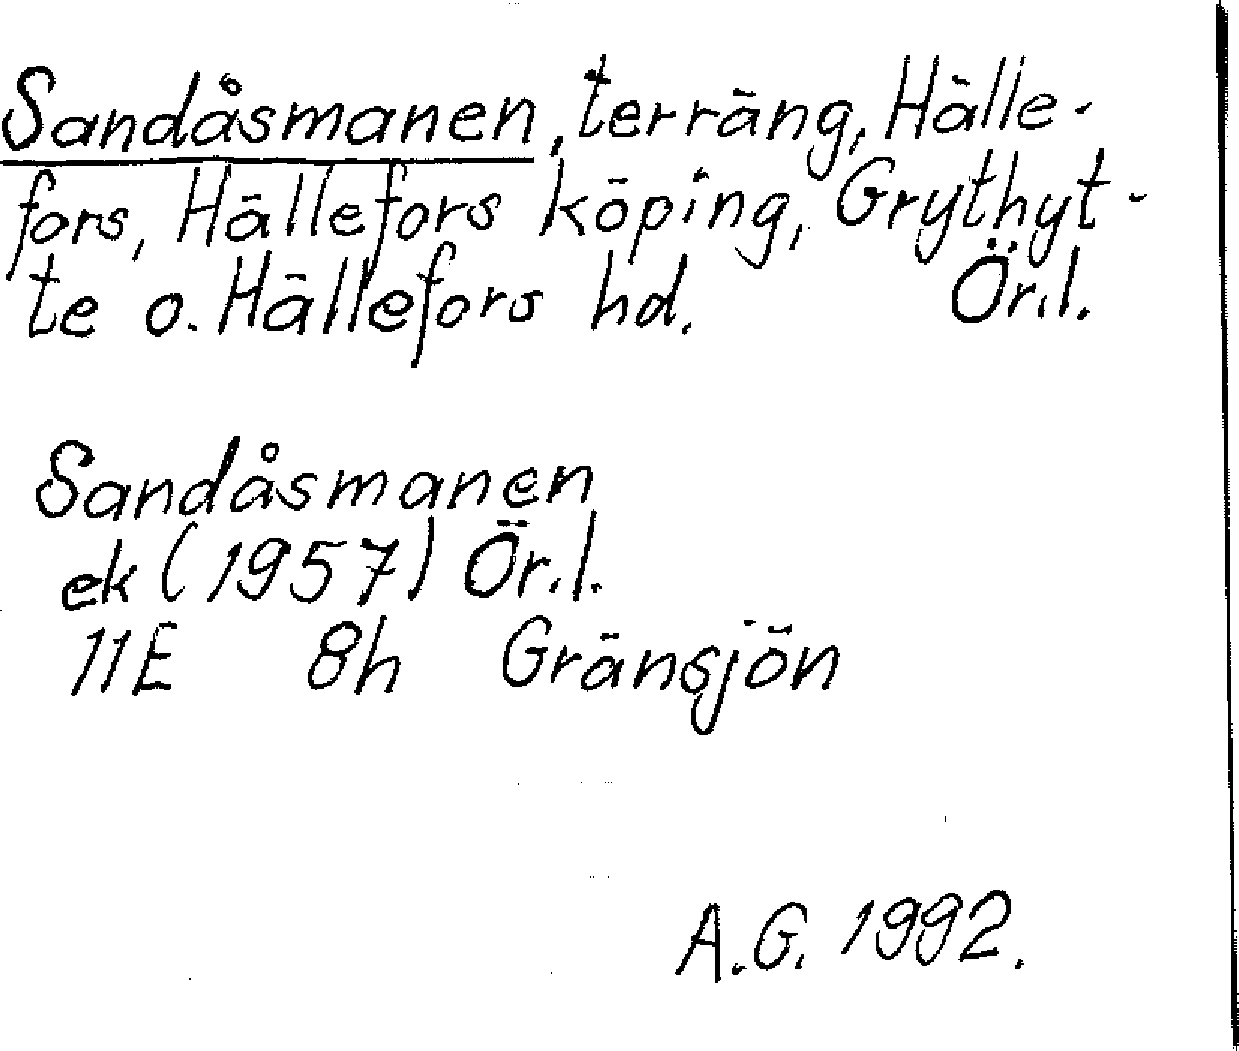 Sandåsmanen, terräng, Hälle-
fors, Hällefors köping, Grythyt-
te o. Hällefors hd. Ör.l.
Sandåsmanen
ek (1957) Ör.l.
11E 8h Gränsjön
A.G. 1992.